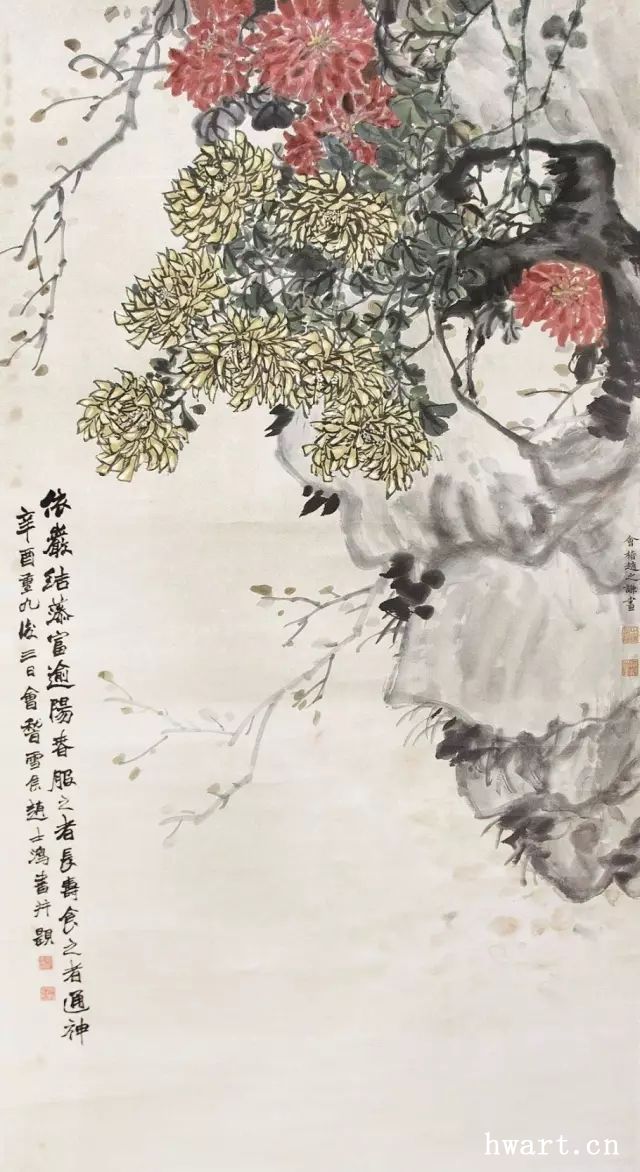 會稽趙之謙畫
依巖結蕊富逾陽春服之者長壽食之者通神
辛酉重九後三日會稽雪矦趙士鴻書并題
hwart.cn